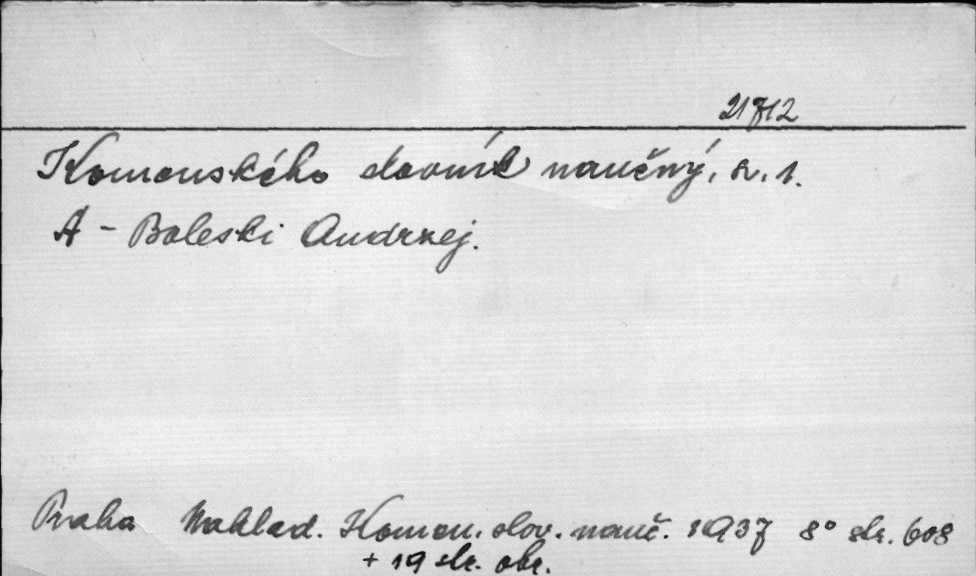 21712
Komenského slovník naučný, sv. 1.
A - Boleski Andrzej.
Praha Naklad. Komen. slov. nauč. 1937 8° str. 608
+ 19 str. obr.